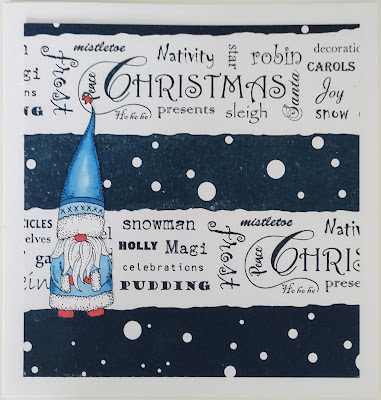 mistletoe Nativity star robin decoratio
frost Peace CHRISTMAS Santa CAROLS
Magi Joy
PUDDING Ho ho ho presents sleigh snow
CICLES snowman mistletoe Nativ
elves HOLLY Magi frost Peace CHRIS
celebrations
PUDDING Ho ho ho prese